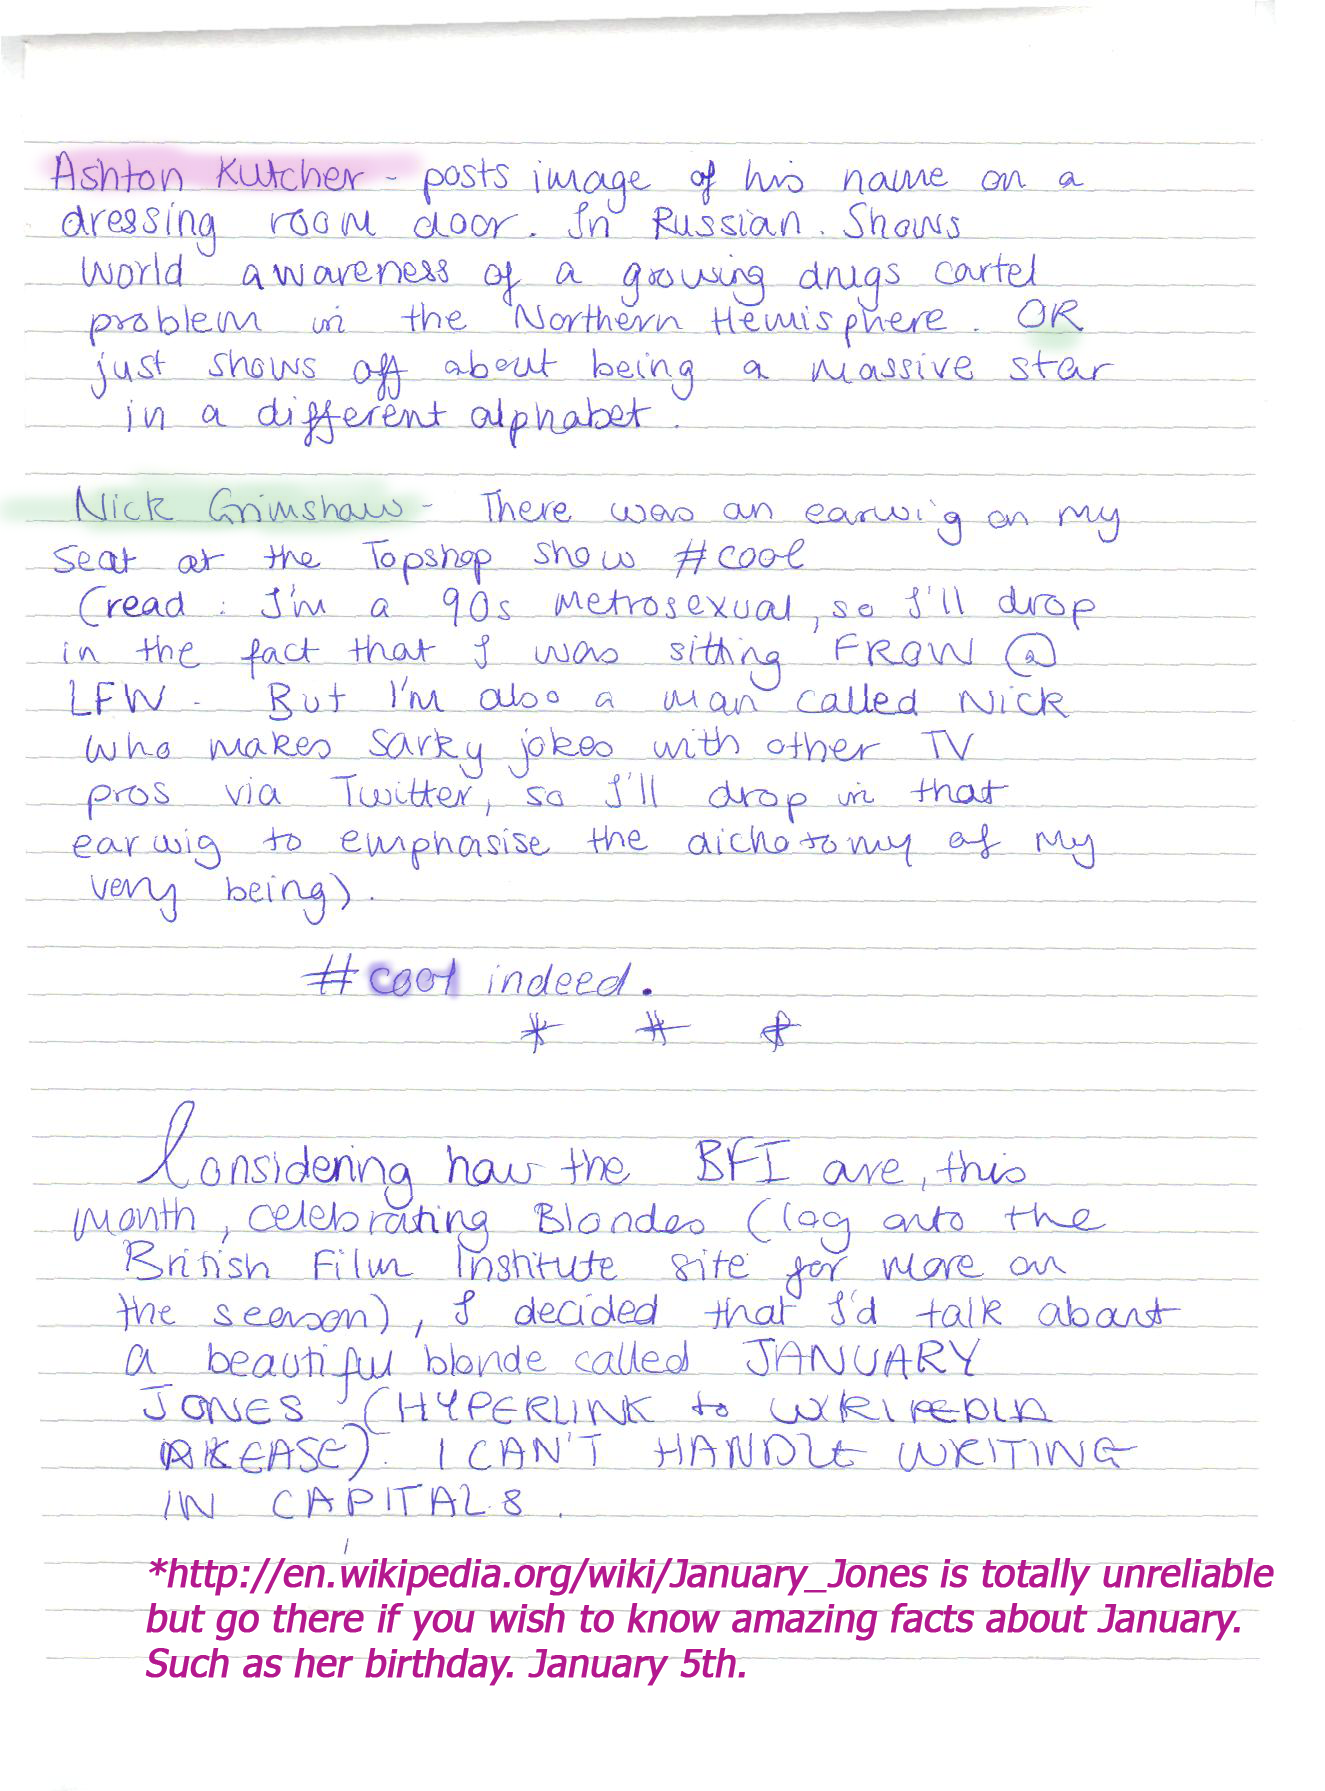 Ashton Kutcher - posts image of his name on a
dressing room door. In Russian. Shows
world awareness of a growing drugs cartel
problem in the Northern Hemisphere. OR
just shows off about being a massive star
in a different alphabet.
Nick Grimshaw - There was an earwig on my
seat at the Topshop show #cool
(read: I'm a 90s metrosexual, so I'll drop
in the fact that I was sitting FROW @
LFW. But I'm also a man called Nick
who makes sarky jokes with other TV
pros via Twitter, so I'll drop in that
earwig to emphasise the dichotomy of my
very being).
#cool indeed.
* * *
Considering how the BFI are, this
month, celebrating Blondes (log onto the
British Film Institute site for more on
the season), I decided that I'd talk about
a beautiful blonde called JANUARY
JONES (HYPERLINK to WIKIPEDIA
). I CAN'T HANDLE WRITING
IN CAPITALS.
*http://en.wikipedia.org/wiki/January_Jones is totally unreliable
but go there if you wish to know amazing facts about January.
Such as her birthday. January 5th.